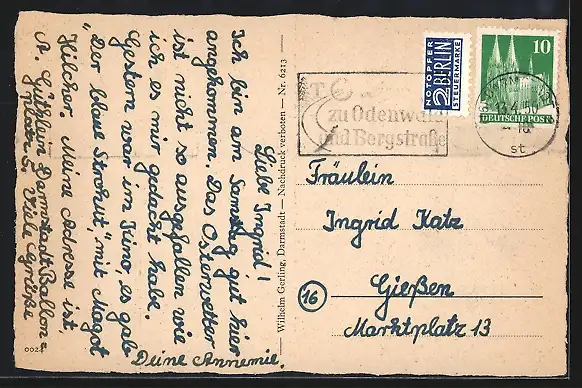 Liebe Ingrid!
Ich bin am Samstag gut hier
angekommen. Das Osterwetter
ist nicht so ausgefallen wie
ich es mir gedacht habe.
Gestern war im Kino, es gab
"Der blaue Strohut", mit Magot
Hilcher. Meine Adresse ist
A. Guthleim Darmstadt Ballon-
platz 5. Viele Grüße
Deine Annemie.
0024
Wilhelm Gerling, Darmstadt — Nachdruck verboten — Nr. 6213
NOTOPFER
2 BERLIN
STEUERMARKE
10
DEUTSCHE POST
zu Odenwald
und Bergstraße
13.4.50
st
Fräulein
Ingrid Katz
16
Gießen
Marktplatz 13